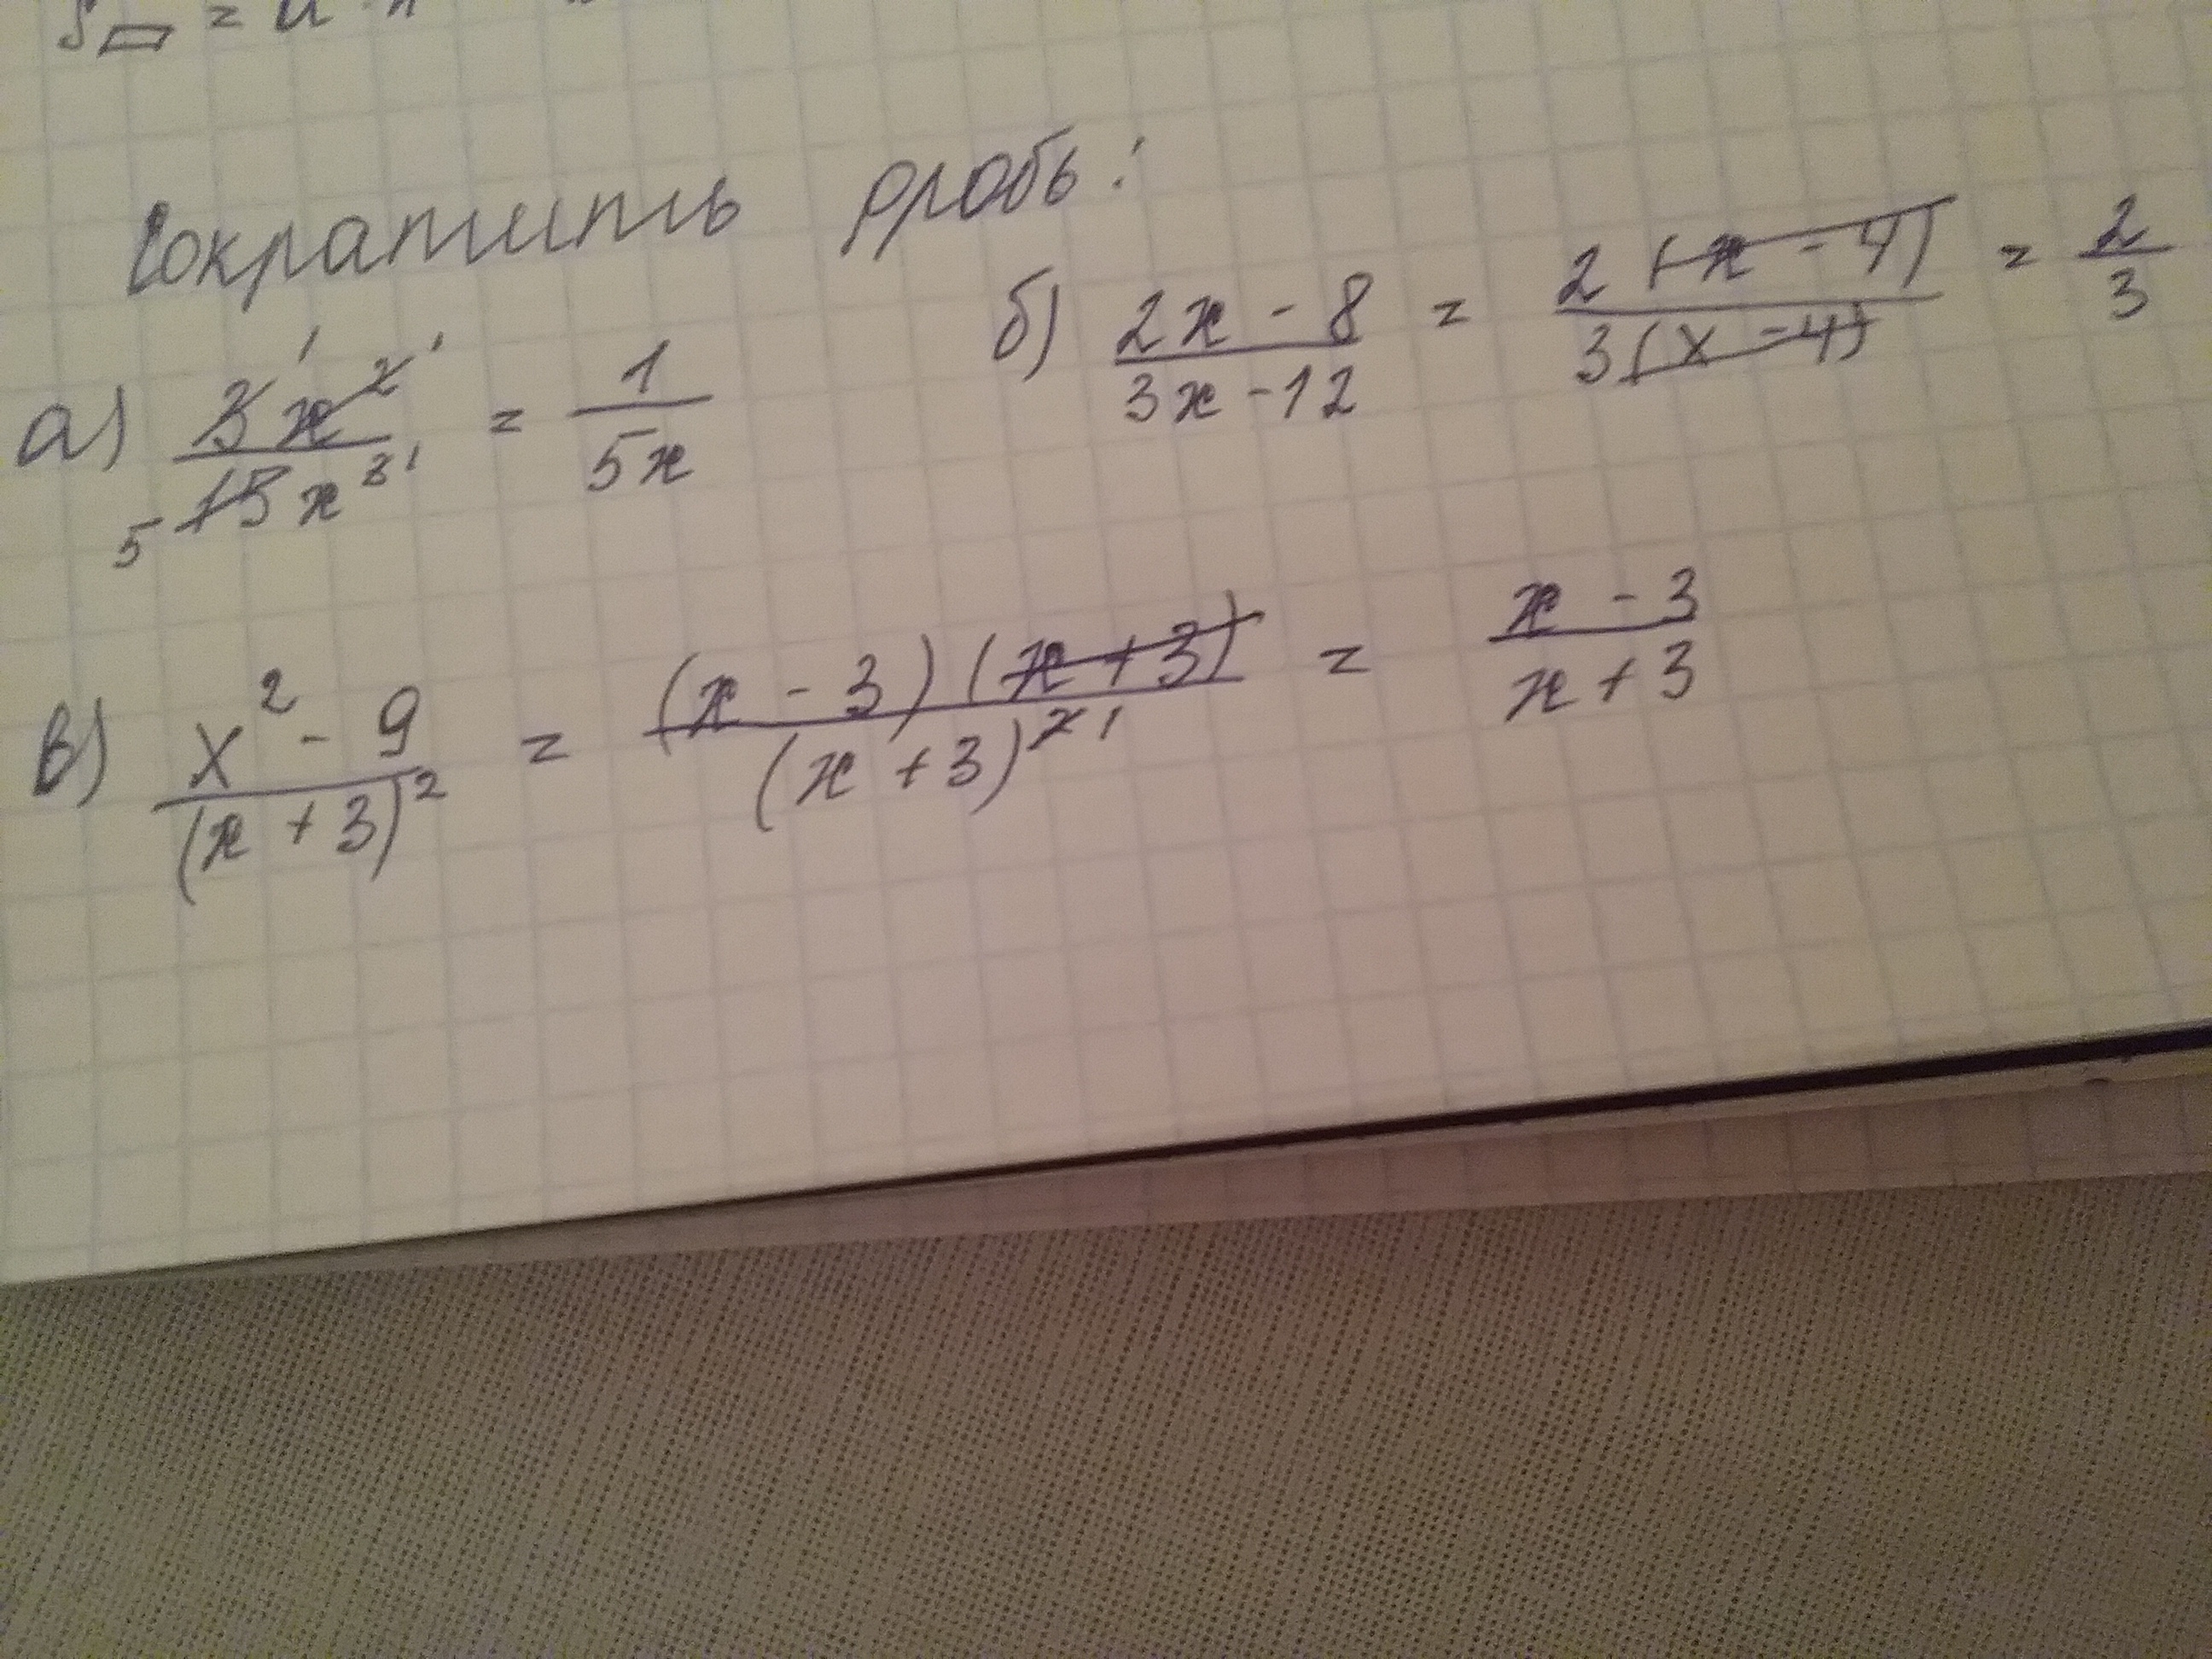 S▱ = a · h
Сократить дробь:
а) 3¹x²¹ / 5 15x³¹ = 1 / 5x
б) 2x - 8 / 3x - 12 = 2(x - 4) / 3(x - 4) = 2 / 3
в) x² - 9 / (x + 3)² = (x - 3)(x + 3) / (x + 3)²¹ = x - 3 / x + 3